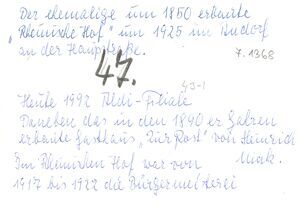 Der ehemalige um 1850 erbaute
"Rheinische Hof" um 1925 in Audorf
an der Hauptstraße.
7.1368
47.
43-1
Heute 1992 Aldi-Filiale
Daneben das in den 1840er Jahren
erbaute Gasthaus "Zur Post" von Heinrich
Mak.
Im Rheinischen Hof war von
1917 bis 1922 die Bürgermeisterei